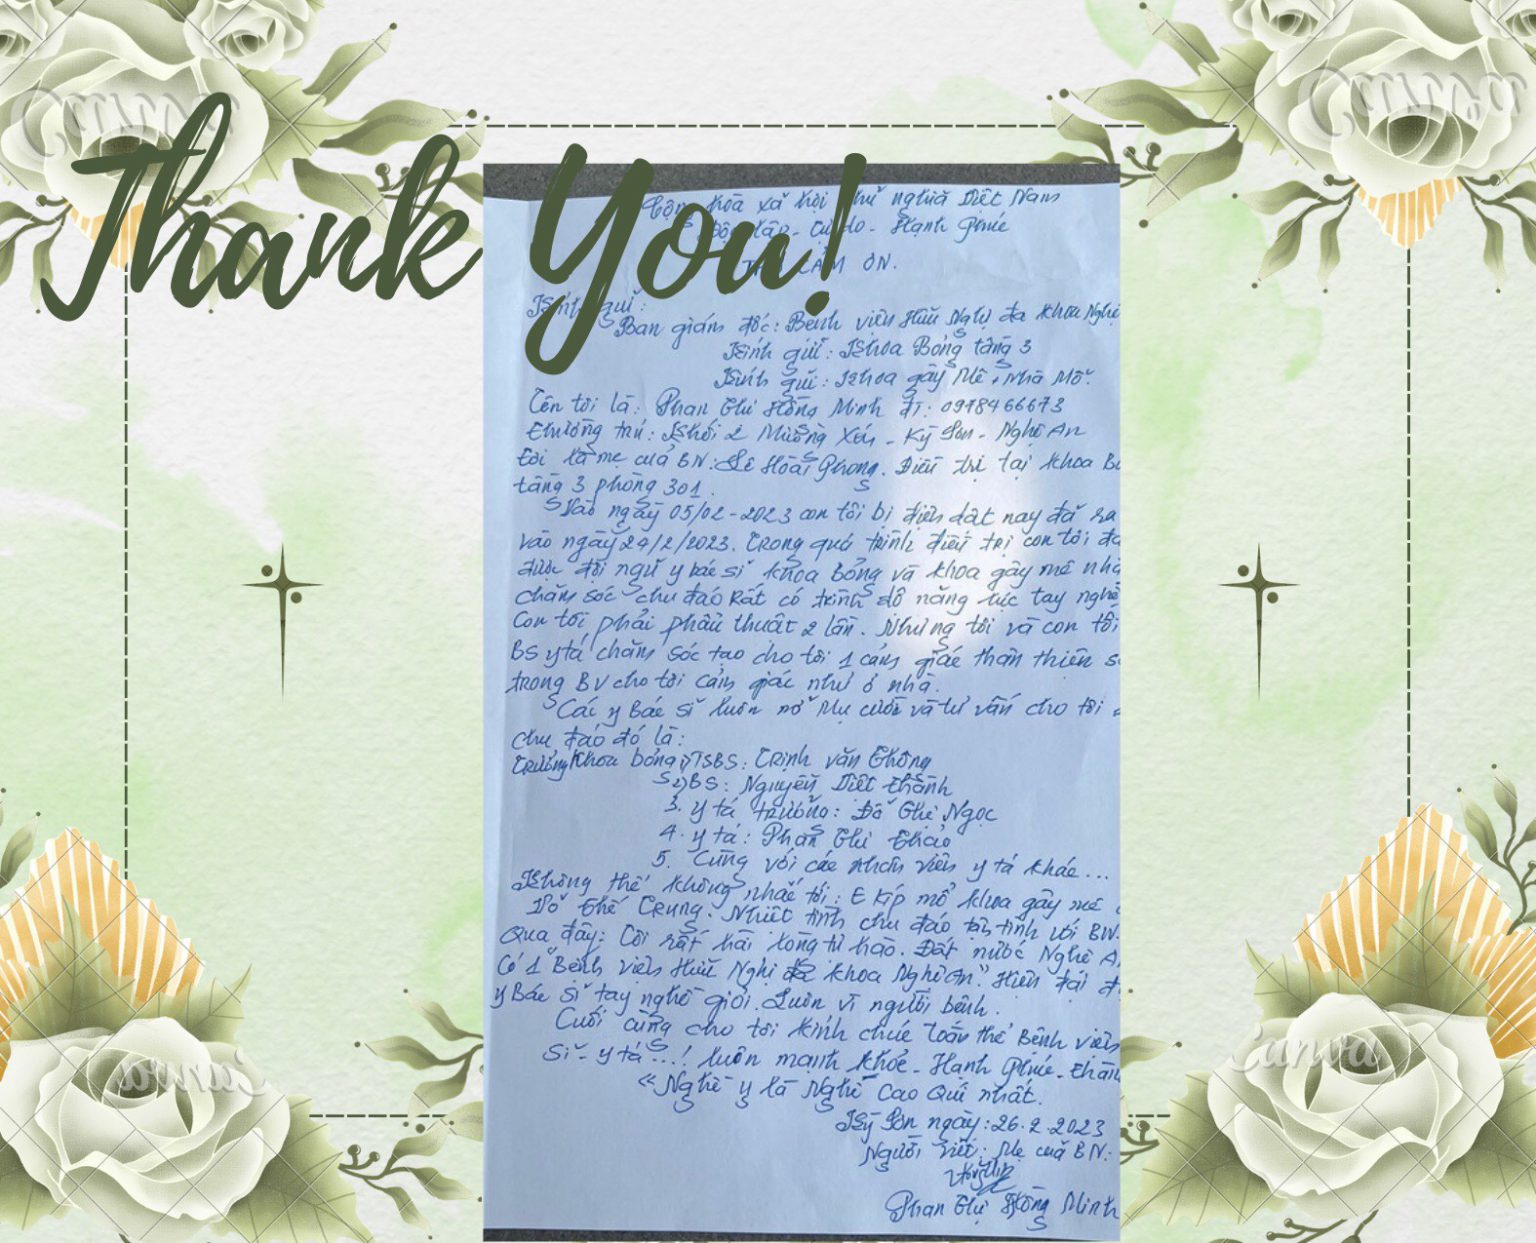 Thank You!
Cộng hòa xã hội chủ nghĩa Việt Nam
Độc lập - Tự do - Hạnh Phúc
THƯ CẢM ƠN.
Kính gửi:
Ban giám đốc: Bệnh viện Hữu Nghị đa khoa Nghệ
Kính gửi: Khoa Bỏng tầng 3
Kính gửi: Khoa gây Mê, Nhà Mổ.
Tên tôi là: Phan Thị Hồng Minh ĐT: 0978466673
Thường trú: Khối 2 Mường Xén - Kỳ Sơn - Nghệ An
Tôi là mẹ của BN: Lê Hoài Phong. Điều trị tại khoa B
tầng 3 phòng 301.
Vào ngày 05/02-2023 con tôi bị điện dật nay đã ra
vào ngày 24/2/2023. Trong quá trình điều trị con tôi đã
được đội ngũ y bác sĩ khoa bỏng và khoa gây mê nhà
chăm sóc chu đáo Rất có trình độ năng lực tay nghề
Con tôi phải phẫu thuật 2 lần. Nhưng tôi và con tôi
BS y tá chăm sóc tạo cho tôi 1 cảm giác thân thiện
trong BV cho tôi cảm giác như ở nhà.
Các y Bác sĩ luôn nở nụ cười và tư vấn cho tôi
chu đáo đó là:
Trưởng khoa bỏng 1) TSBS: Trịnh văn Thông
2) BS: Nguyễn Viết Thành
3. y tá trưởng: Đỗ Thị Ngọc
4. y tá: Phan Thị Thảo
5. Cùng với các nhân viên y tá khác...
Không thể không nhắc tới: E kíp mổ khoa gây mê
Võ Thế Trung. Nhiệt tình chu đáo tận tình với BN.
Qua đây: Tôi rất hài lòng tự hào. Đất nước Nghệ A
Có 1 "Bệnh viện Hữu Nghị đa khoa Nghệ An". Hiện đại
y Bác sĩ tay nghề giỏi. Luôn vì người bệnh.
Cuối cùng cho tôi kính chúc toàn thể Bệnh viện
Sĩ - y tá...! luôn mạnh khỏe - Hạnh Phúc - thành
"Nghề y là Nghề Cao Quí nhất.
Kỳ Sơn ngày: 26.2.2023
Người viết: Mẹ của BN:
Phan Thị Hồng Minh